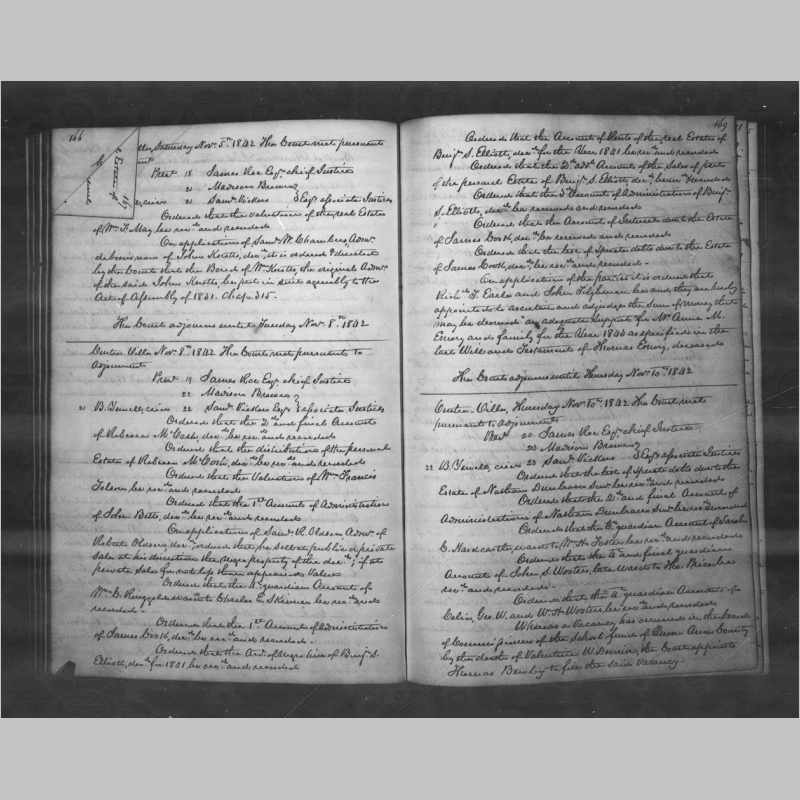 166
Estate of
ville, Saturday Nov. 5th 1842 The Court met pursuant
Prest 18 James Roe Esqr chief Justice
21 Madison Brown
crier 21 Saml Vickers Esqrs associate Justices
Ordered that the valuation of the real Estate
of Wm F. May, be recd and recorded
On application of Saml W. Chambers, Admr
de bonis non of John Knotts, decd, it is ordered & directed
by the Court that the Bond of W. Knotts, the original Admr
of the said John Knotts, be put in suit agreeably to the
Act of Assembly of 1831. Chap. 315.
The Court adjourns until Tuesday Nov. 8th 1842
Centre Ville Nov. 8th 1842 The Court met pursuant to
adjournment
Prest 19 James Roe Esqr chief Justice
22 Madison Brown
21 B. Yewell, crier 22 Saml Vickers Esqrs associate Justices
Ordered that the 2nd and final Account
of Rebecca McCosh, decd be recd and recorded
Ordered that the distribution of the personal
Estate of Rebecca McCosh, decd be recd and recorded
Ordered that the Valuation of Wm Francis
be recd and recorded
Ordered that the 1st Account of Administration
of John Betts, decd be recd and recorded
On application of Saml R. Oldson Admr of
Robert Oldson, decd ordered that he sell at public or private
Sale at his discretion the Negro property of the decd; if at
private Sale for not less than appraised Value
Ordered that the guardian Account of
Wm C. Ringgold ward to Charles C. Skinner be recd and
recorded.
Ordered that the 1st Account of Administration
of James Cook, decd be recd and recorded.
Ordered that the Acct of Negro hire of Benj. S.
Elliott, decd for 1841 be recd and recorded
169
Ordered that the Account of Rents of the real Estate of
Benj. S. Elliott, decd for the Year 1841 be recd and recorded
Ordered that the 2nd addl Account of the Sales of part
of the personal Estate of Benj. S. Elliott decd be recd & recorded
Ordered that the 3d Account of Administration of Benj.
S. Elliott, decd be received and recorded
Ordered that the Account of Interest due to the Estate
of James Cook, decd be received and recorded
Ordered that the list of Sperate debts due to the Estate
of James Cook, decd be recd and recorded.
On application of the parties it is ordered that
Richd T. Earle and John Tilghman be and they are hereby
appointed to ascertain and adjudge the Sum of money that
may be deemed an adequate Support for Mrs Anna M.
Emory and family for the Year 1844 as specified in the
last Will and Testament of Thomas Emory, deceased
The Court adjourns until Thursday Nov. 10th 1842
Centre-Ville, Thursday Nov. 10th 1842 The Court met
pursuant to adjournment
Prest 20 James Roe Esqr chief Justice
23 Madison Brown
22 B. Yewell, crier 23 Saml Vickers Esqrs associate Justices
Ordered that the list of Sperate debts due to the
Estate of Nathan Dunbracco Sur be recd and recorded
Ordered that the 2nd and final Account of
Administration of Nathan Dunbracco Sur be recd & recorded
Ordered that the guardian Account of Sarah
C. Hardcastle, ward to Wm H. Foster be recd and recorded
Ordered that the and final guardian
Account of John S. Wooters, late ward to Thos be
recd and recorded.
Ordered that the guardian Account of
Geo. W. and W. H. Wooters, be recd and recorded
Whereas a Vacancy has occurred in the board
of Commissioners of the School fund of Queen Anns County
by the death of Valentine W. the Court appoints
Thomas to fill the said Vacancy.